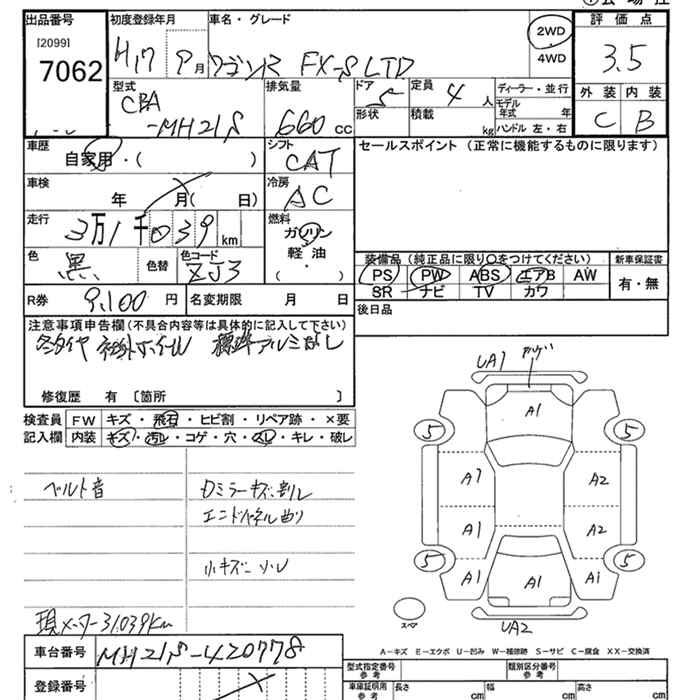 出品番号 初度登録年月 車名・グレード 評価点
[2099]
7062 H17 9月 ワゴンR FX-S LTD 2WD 3.5
4WD
型式 排気量 ドア 定員 ディーラー・並行 外装 内装
CBA 5 4人 モデル年式 年
-MH21S 660cc 形状 積載 kg ハンドル 左・右 C B
車歴 シフト セールスポイント (正常に機能するものに限ります)
自家用・( ) CAT
車検 冷房
年 月( 日) AC
走行 3万1千039km 燃料
ガソリン
色 色コード 軽油
黒 色替 ZJ3 ・( )
装備品 (純正品に限り○をつけてください) 新車保証書
PS PW ABS エアB AW 有・無
SR ナビ TV カワ
R券 9,100円 名変期限 月 日 後日品
注意事項申告欄(不具合内容等は具体的に記入して下さい)
冬タイヤ 社外ホイール 標準アルミなし
修復歴 有 〔箇所 〕
検査員 FW キズ・飛石・ヒビ割・リペア跡・×要
記入欄 内装 キズ・汚レ・コゲ・穴・スレ・キレ・破レ
ベルト音 ロミラーキズ割レ
エンドパネル曲り
小キズ
現メーター31,039km
UA1
A1
5 5
A2
A1 A2
5 5
A1 A1 A1
スペア
UA2
A-キズ E-エクボ U-凹み W-補修跡 S-サビ C-腐食 XX-交換済
車台番号 MH21S-420778
登録番号
型式指定番号 参考 類別区分番号 参考
車庫証明用 参考 長さ cm 幅 cm 高さ cm